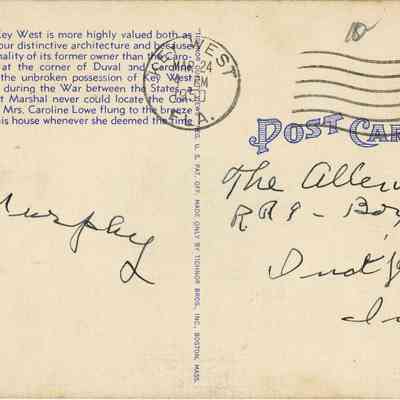 Key West is more highly valued both as
our distinctive architecture and because
nality of its former owner than the Caro-
at the corner of Duval and Caroline
the unbroken possession of Key West
during the War between the States, a
t Marshal never could locate the Con-
Mrs. Caroline Lowe flung to the breeze
his house whenever she deemed the time
Murphy
KEY WEST
MAR 24
PM
FLA.
REG. U. S. PAT. OFF. MADE ONLY BY TICHNOR BROS., INC., BOSTON, MASS.
10
POST CAR
The Allen
RR 9 - Box
Ind